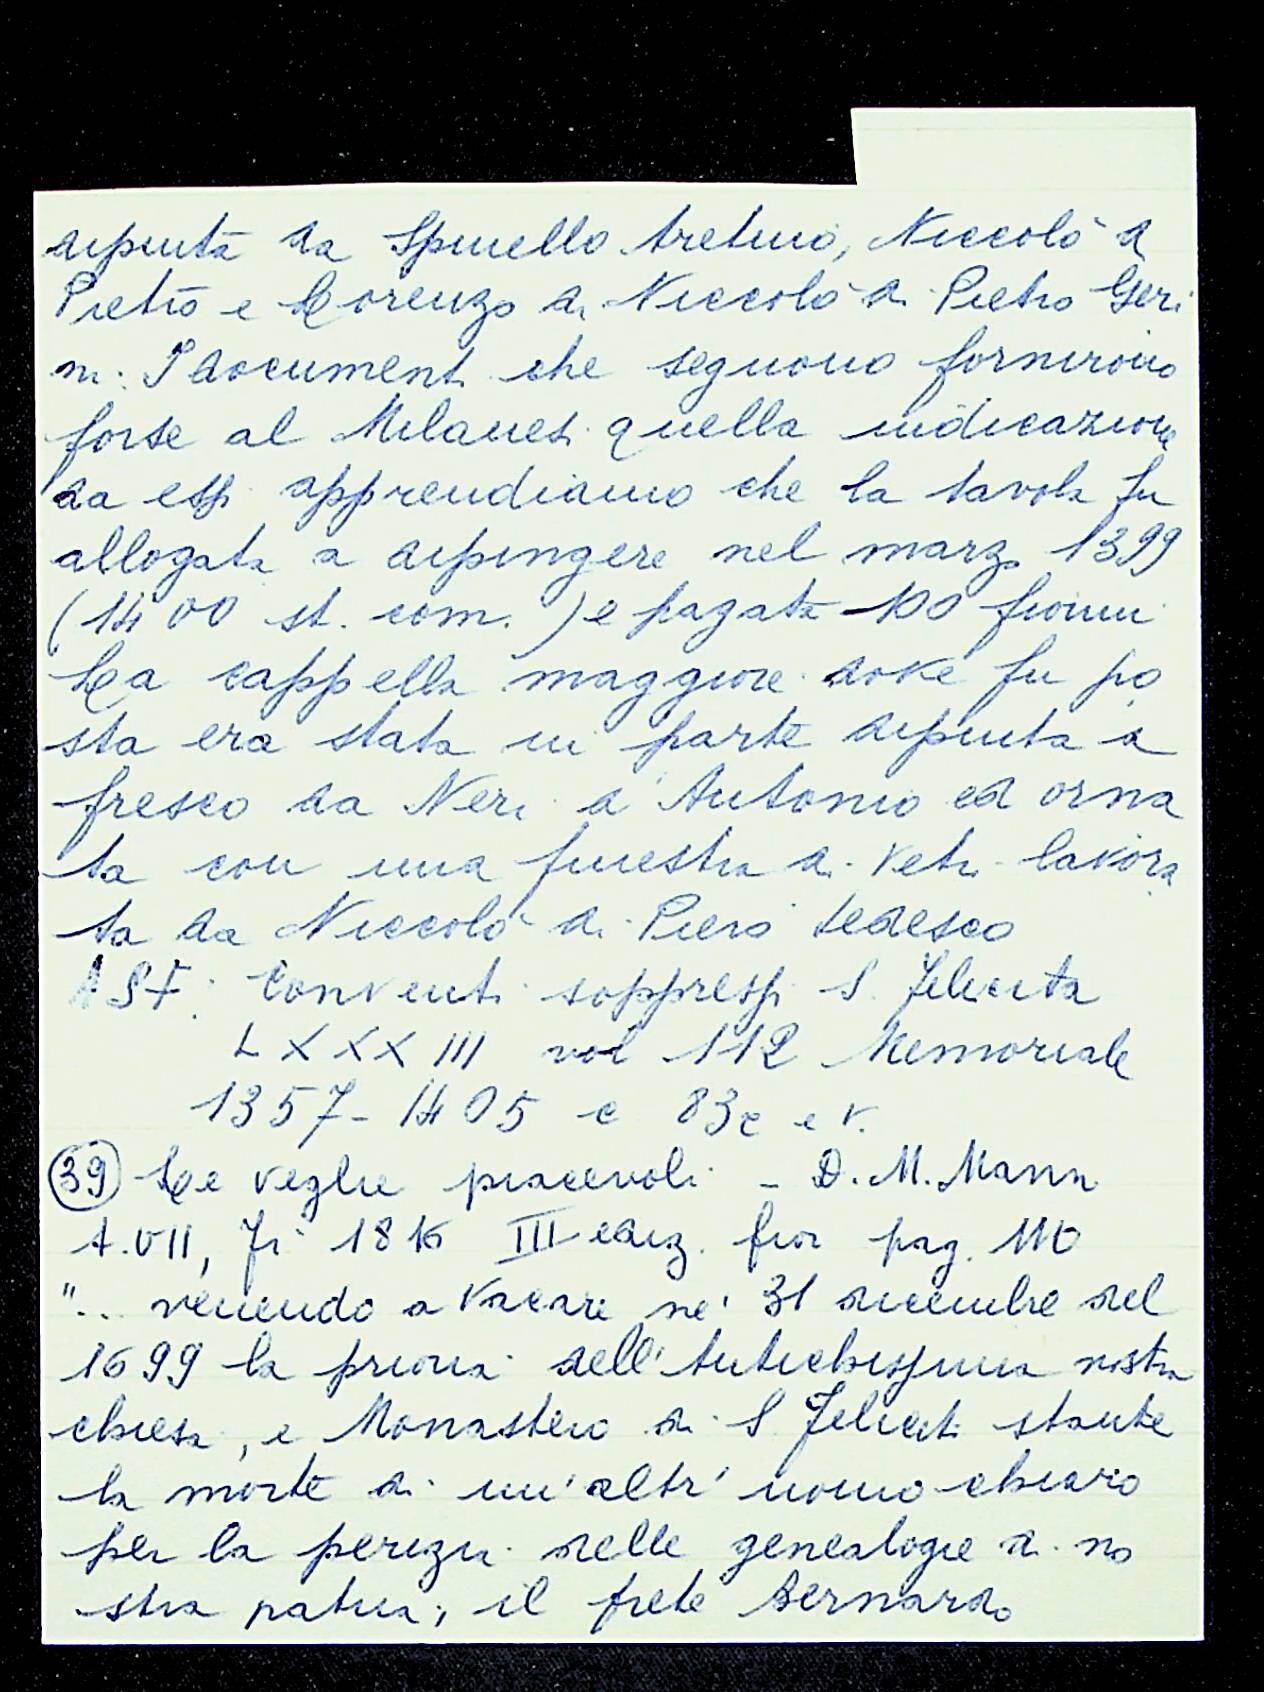 dipinta da Spinello Aretino, Niccolò d
Pietro e Lorenzo di Niccolò di Pietro Geri
ni. I documenti che seguono fornirono
forse al Milanesi quella indicazione
da essi apprendiamo che la tavola fu
allogata a dipingere nel marzo 1399
(1400 st. com.) e pagata 100 fiorini
La cappella maggiore dove fu po
sta era stata in parte dipinta a
fresco da Neri d'Antonio ed orna
ta con una finestra di vetri lavora
ta da Niccolò di Piero tedesco
ASF. Conventi soppressi S. Felicita
LXXXIII vol 112 Memoriale
1357-1405 c 83r e v.
(39) Le veglie piacevoli - D. M. Manni
t. VII, Fi 1816 III ediz. fior pag. 110
"... venendo a vacare ne' 31 dicembre del
1699 la prioria dell'Antichissima nostra
chiesa, e Monastero di S. Felicita stante
la morte di un'altr'uomo chiaro
per la perizia delle genealogie di no
stra patria, il prete Bernardo